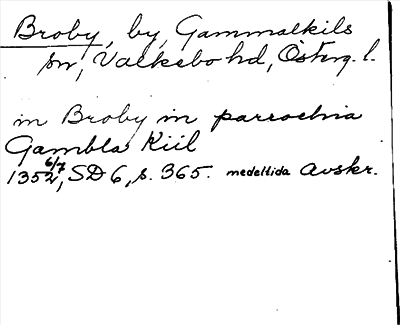 Broby, by, Gammalkils
sn, Valkebo hd, Österg. l.
in Broby in parrochia
Gambla Kiil
1352 6/7, SD 6, s. 365. medeltida Avskr.